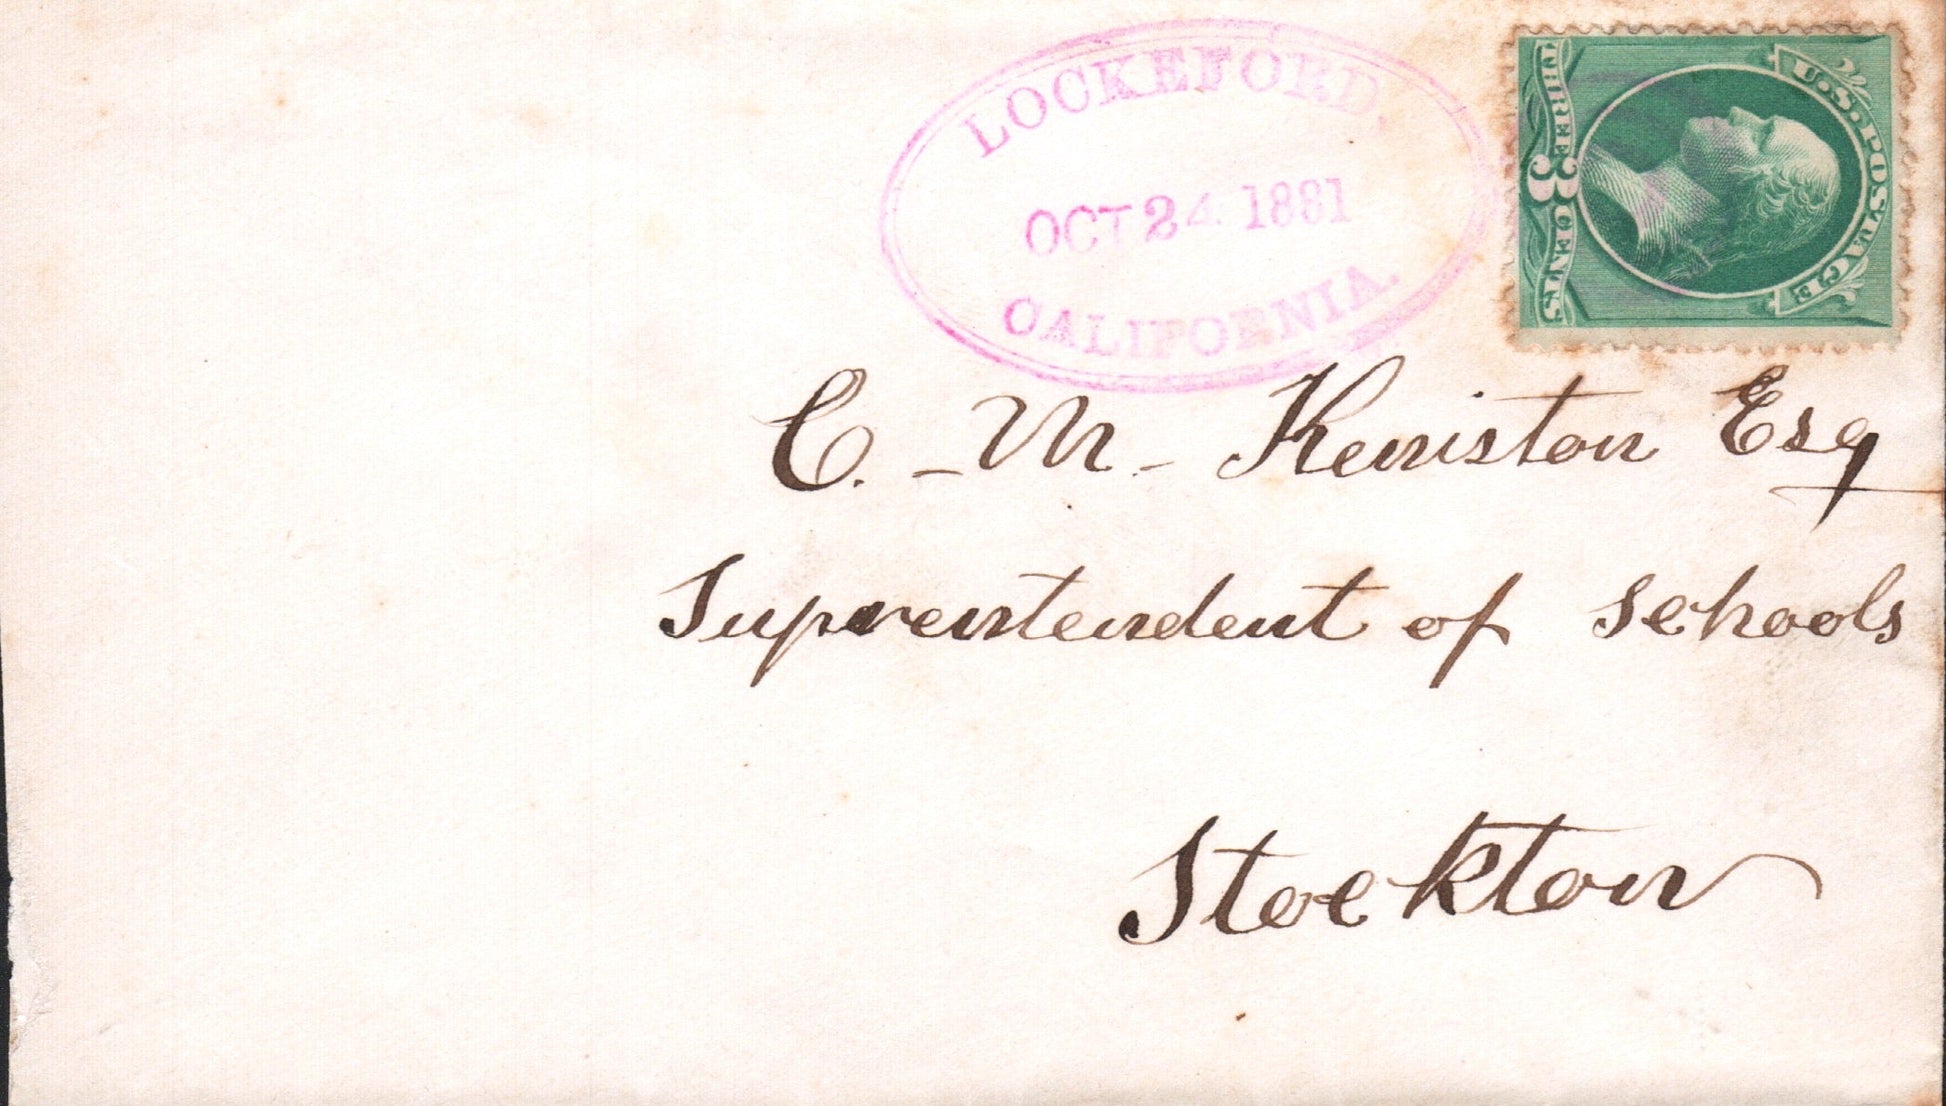 LOCKEFORD.
OCT 24 1881
CALIFORNIA.
U.S. POSTAGE
THREE 3 CENTS
C. - M - Keniston Esq
Suprentendent of schools
Stockton